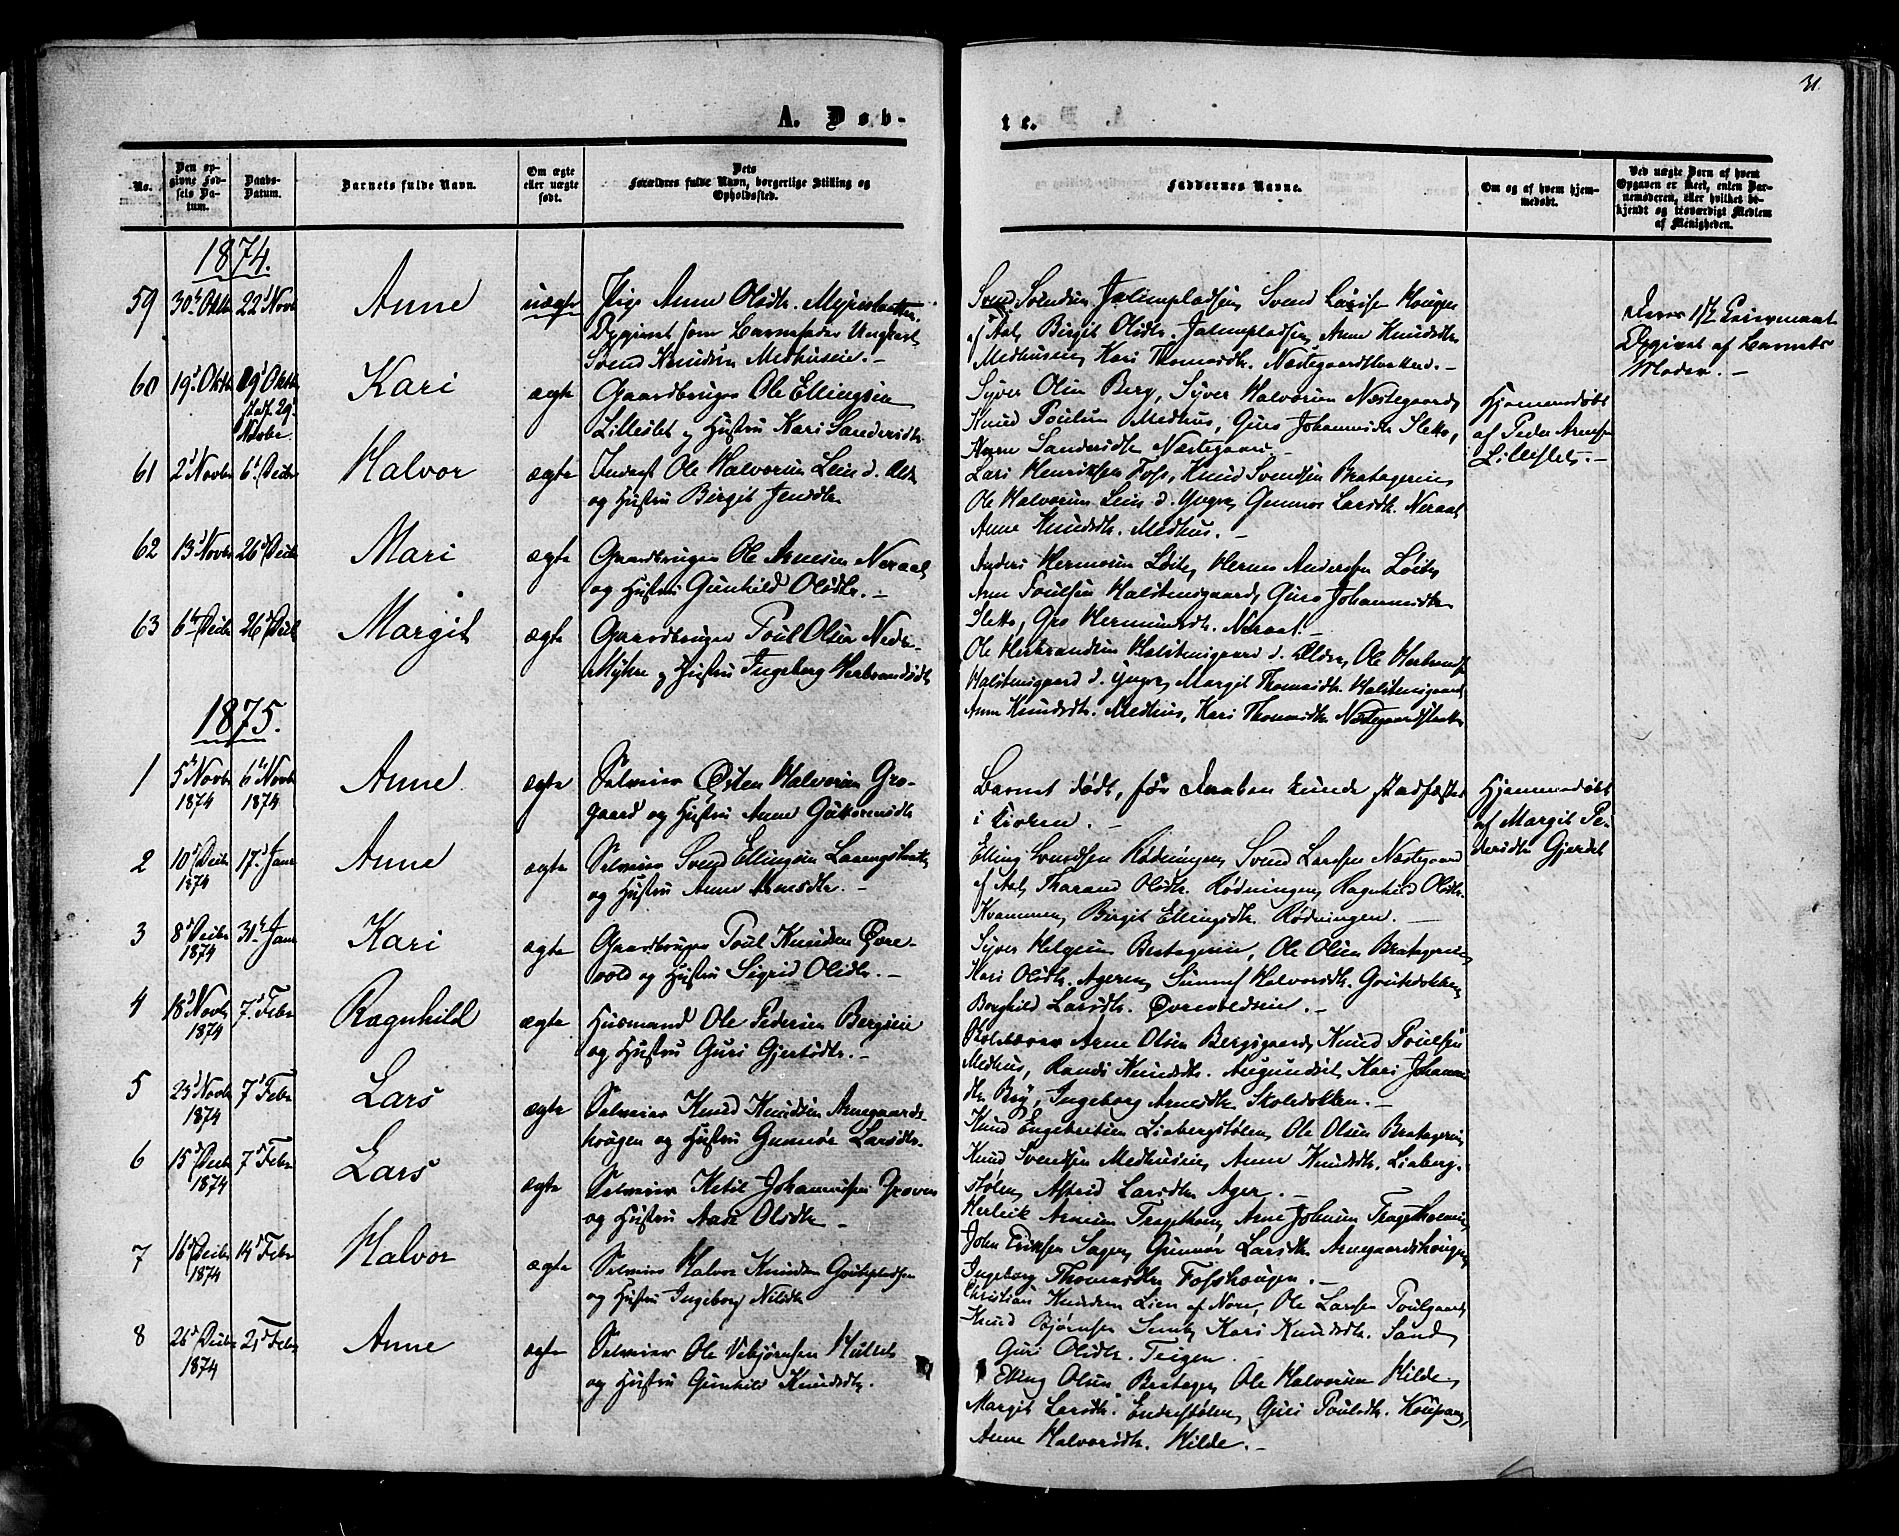 31.
A. Døb-
te.
No.
Den op-
givne Fød-
sels Da-
tum.
Daabs-
Datum.
Barnets fulde Navn.
Om ægte
eller uægte
født.
Dets
Forældres fulde Navn, borgerlige Stilling og
Opholdssted.
Faddernes Navne.
Om og af hvem hjem-
medøbt.
Ved uægte Børn af hvem
Opgaven er skeet, enten Bar-
nemoderen, eller hvilket be-
kjendt og troværdigt Medlem
af Menigheden.
1874.
59 30te Oktbr 22d Novbr Anne uægte Pige Anne Olsdtr.
Opgivet som Barnefader Ungkarl
Svend Knudsen Medhuseie. -
Svend Svendsen Svend Larsen Hougen
af Aal, Birgit Olsdtr. Anne Knudsdtr.
Medhuseie, Kari Thomasdtr. -
1ste Leiermaal
Opgivet af Barnets
Moder. -
60 19d Oktbr 29d Oktbr
stadf. 29d
Novbr.
Kari ægte Gaardbruger Ole Ellingsen
Lilleslet og Hustru Kari Sandersdtr.
Syver Olsen Berg, Syver Halvorsen Næstegaard,
Knud Poulsen Medhus, Guro Johannesdtr. Sletto,
Sandersdtr. Næstegaard. -
Hjemmedøbt
af Peder Arnesen
Lilleslet. -
61 2d Novbr 6te Decbr Halvor ægte Inderst Ole Halvorsen Lein d. Ældre
og Hustru Birgit Jensdtr.
Lars Henriksen Foss, Knud Svendsen Bratagereie,
Ole Halvorsen Lein d. Yngre, Gunnor Larsdtr. Neraal
Anne Knudsdtr. Medhus. -
62 13d Novbr 26d Decbr Mari ægte Gaardbruger Ole Arnesen Neraal
og Hustru Gunhild Olsdtr. -
Anders Hermosen Løite, Herm Andersen Løite,
Arne Poulsen Halstensgaard, Guro Johannesdtr.
Sletto, Gro Hermundsdtr. Neraal. -
63 6te Decbr 26d Decbr Margit ægte Gaardbruger Poul Olsen Nedre-
Mykre og Hustru Ingeborg Herbrandsdtr.
Ole Herbrandsen Halstensgaard d. Ældre, Ole Herbrandsen
Halstensgaard d. Yngre, Margit Thomasdtr. Halstensgaard,
Anne Knudsdtr. Medhus, Kari Thomasdtr.
1875.
1 5te Novbr 1874 6te Novbr 1874 Anne ægte Selveier Østen Halvorsen Gro-
gaard og Hustru Anne Guttormsdtr.
Barnet dødt, før Daaben kunde stadfæstes
i Kirken. -
Hjemmedøbt
af Margit Pe-
dersdtr. Gjerdet
2 10d Decbr 1874 17d Janr Anne ægte Selveier Svend Ellingsen
og Hustru Anne Arnesdtr. -
Elling Svendsen Rødningen, Svend Larsen Næstegaard
af Aal, Tharand Olsdtr. Rødningen, Ragnhild Olsdtr.
Kvammen, Birgit Ellingsdtr. Rødningen. -
3 8d Decbr 1874 31te Janr Kari ægte Gaardbruger Poul Knudsen Øvre-
vold og Hustru Sigrid Olsdtr. -
Syver Helgesen Bratagereie, Ole Olsen Bratagereie,
Kari Olsdtr. Ageren, Sunnef Halvorsdtr.
Borghild Larsdtr. Øvrevoldseie. -
4 18d Novbr 1874 7d Febr Ragnhild ægte Husmand Ole Pedersen Bergseie
og Hustru Guri Gjertsdtr. -
Arne Olsen Bergsgaard, Knud Poulsen
Medhus, Randi Knudsdtr. Kari Johannes-
dtr. Bøy, Ingeborg Arnesdtr. Skoledokken. -
5 23d Novbr 1874 7d Febr Lars ægte Selveier Knud Knudsen Arnegaards-
hougen og Hustru Gunnor Larsdtr.
Knud Engebretsen Liabergstølen, Ole Olsen Bratagereie,
Knud Svendsen Medhuseie, Anne Knudsdtr. Liaberg-
stølen, Astrid Larsdtr. Ager. -
6 15d Decbr 1874 7d Febr Lars ægte Selveier Ketil Johannesen Groven
og Hustru Aase Olsdtr. -
Herleik Arnesen Arne Johnsen
John Eriksen Gunnor Larsdtr. Arnegaardshougen,
Ingeborg Thomasdtr. Fosshougen. -
7 16d Decbr 1874 14d Febr Halvor ægte Selveier Halvor Knudsen
og Hustru Ingeborg Nilsdtr.
Christian Knudsen Lien af Nore, Ole Larsen Poulgaard,
Knud Bjørnsen Kari Knudsdtr. Sand,
Guri Olsdtr. Teigen. -
8 26d Decbr 1874 21d Febr Anne ægte Selveier Ole Vebjørnsen
og Hustru Gunhild Knudsdtr.
Elling Olsen Bratager, Ole Halvorsen Hilde,
Margit Larsdtr. Endrestølen, Guri Poulsdtr.
Anne Halvorsdtr. Hilde. -